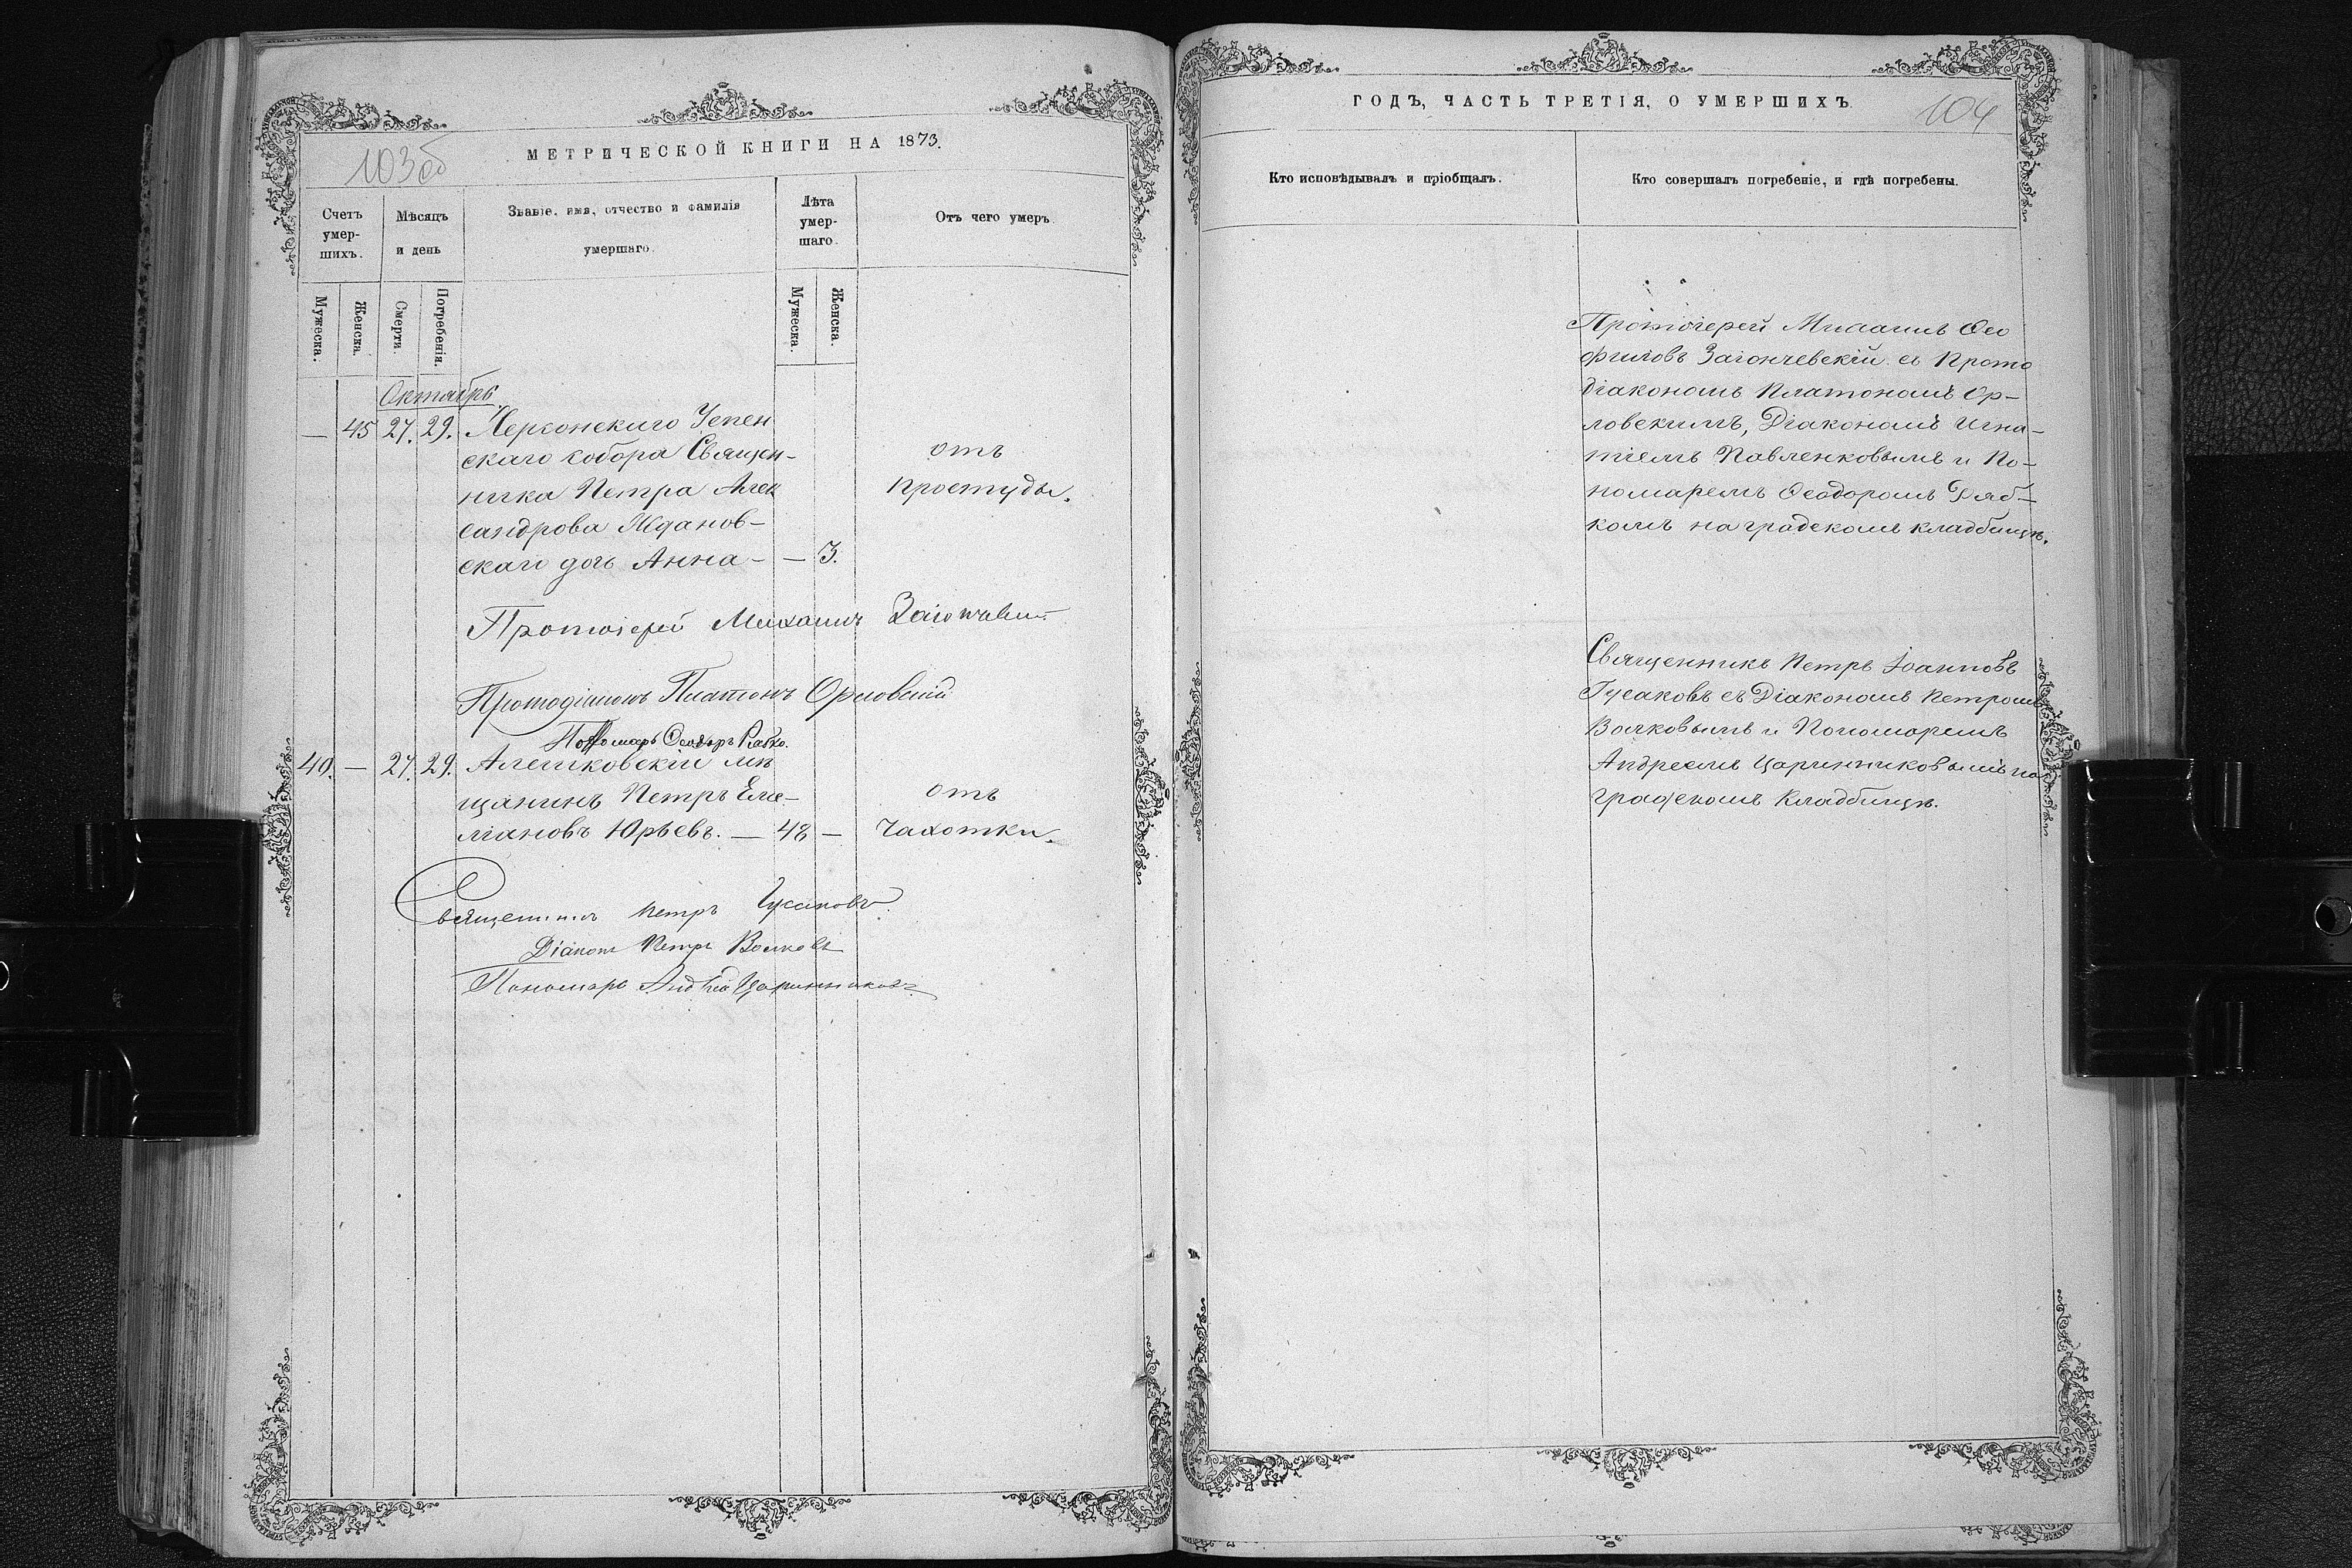 103 об
МЕТРИЧЕСКОЙ КНИГИ НА 1873.
Счетъ умер-шихъ.
Мѣсяцъ и день
Званіе, имя, отчество и фамилія умершаго.
Лѣта умер-шаго.
Отъ чего умеръ.
Мужеска.
Женска.
Смерти.
Погребенія.
Мужеска.
Женска.
Октябрь.
— 45 27. 29. Херсонскаго Успен
скаго собора Священ-
отъ
ника Петра Алек
простуды.
сандрова Жданов
скаго дочь Анна — — 3.
Протоіерей Михаилъ
Протодіаконъ Платонъ Орловскій
Пономарь Ѳеодоръ Рябко.
40. — 27. 29. Алешковскій мѣ
щанинъ Петръ Еме-
отъ
ліановъ Юрьевъ. — 48 — чахотки.
Священникъ Петръ Гусаковъ
Діаконъ Петръ Волковъ
Пономарь Андрей Царинниковъ
104
ГОДЪ, ЧАСТЬ ТРЕТІЯ, О УМЕРШИХЪ.
Кто исповѣдывалъ и пріобщалъ.
Кто совершалъ погребеніе, и гдѣ погребены.
Протоіерей Михаилъ Ѳео
филовъ Загончевскій съ Прото
діакономъ Платономъ Ор-
ловскимъ, Діакономъ Игна-
тіемъ Павленковымъ и По-
номаремъ Ѳеодоромъ Ряб-
комъ на градскомъ кладбищѣ.
Священникъ Петръ Іоанновъ
Гусаковъ съ Діакономъ Петромъ
Волковымъ и Пономаремъ
Андреемъ Царинниковымъ на
градскомъ кладбищѣ.